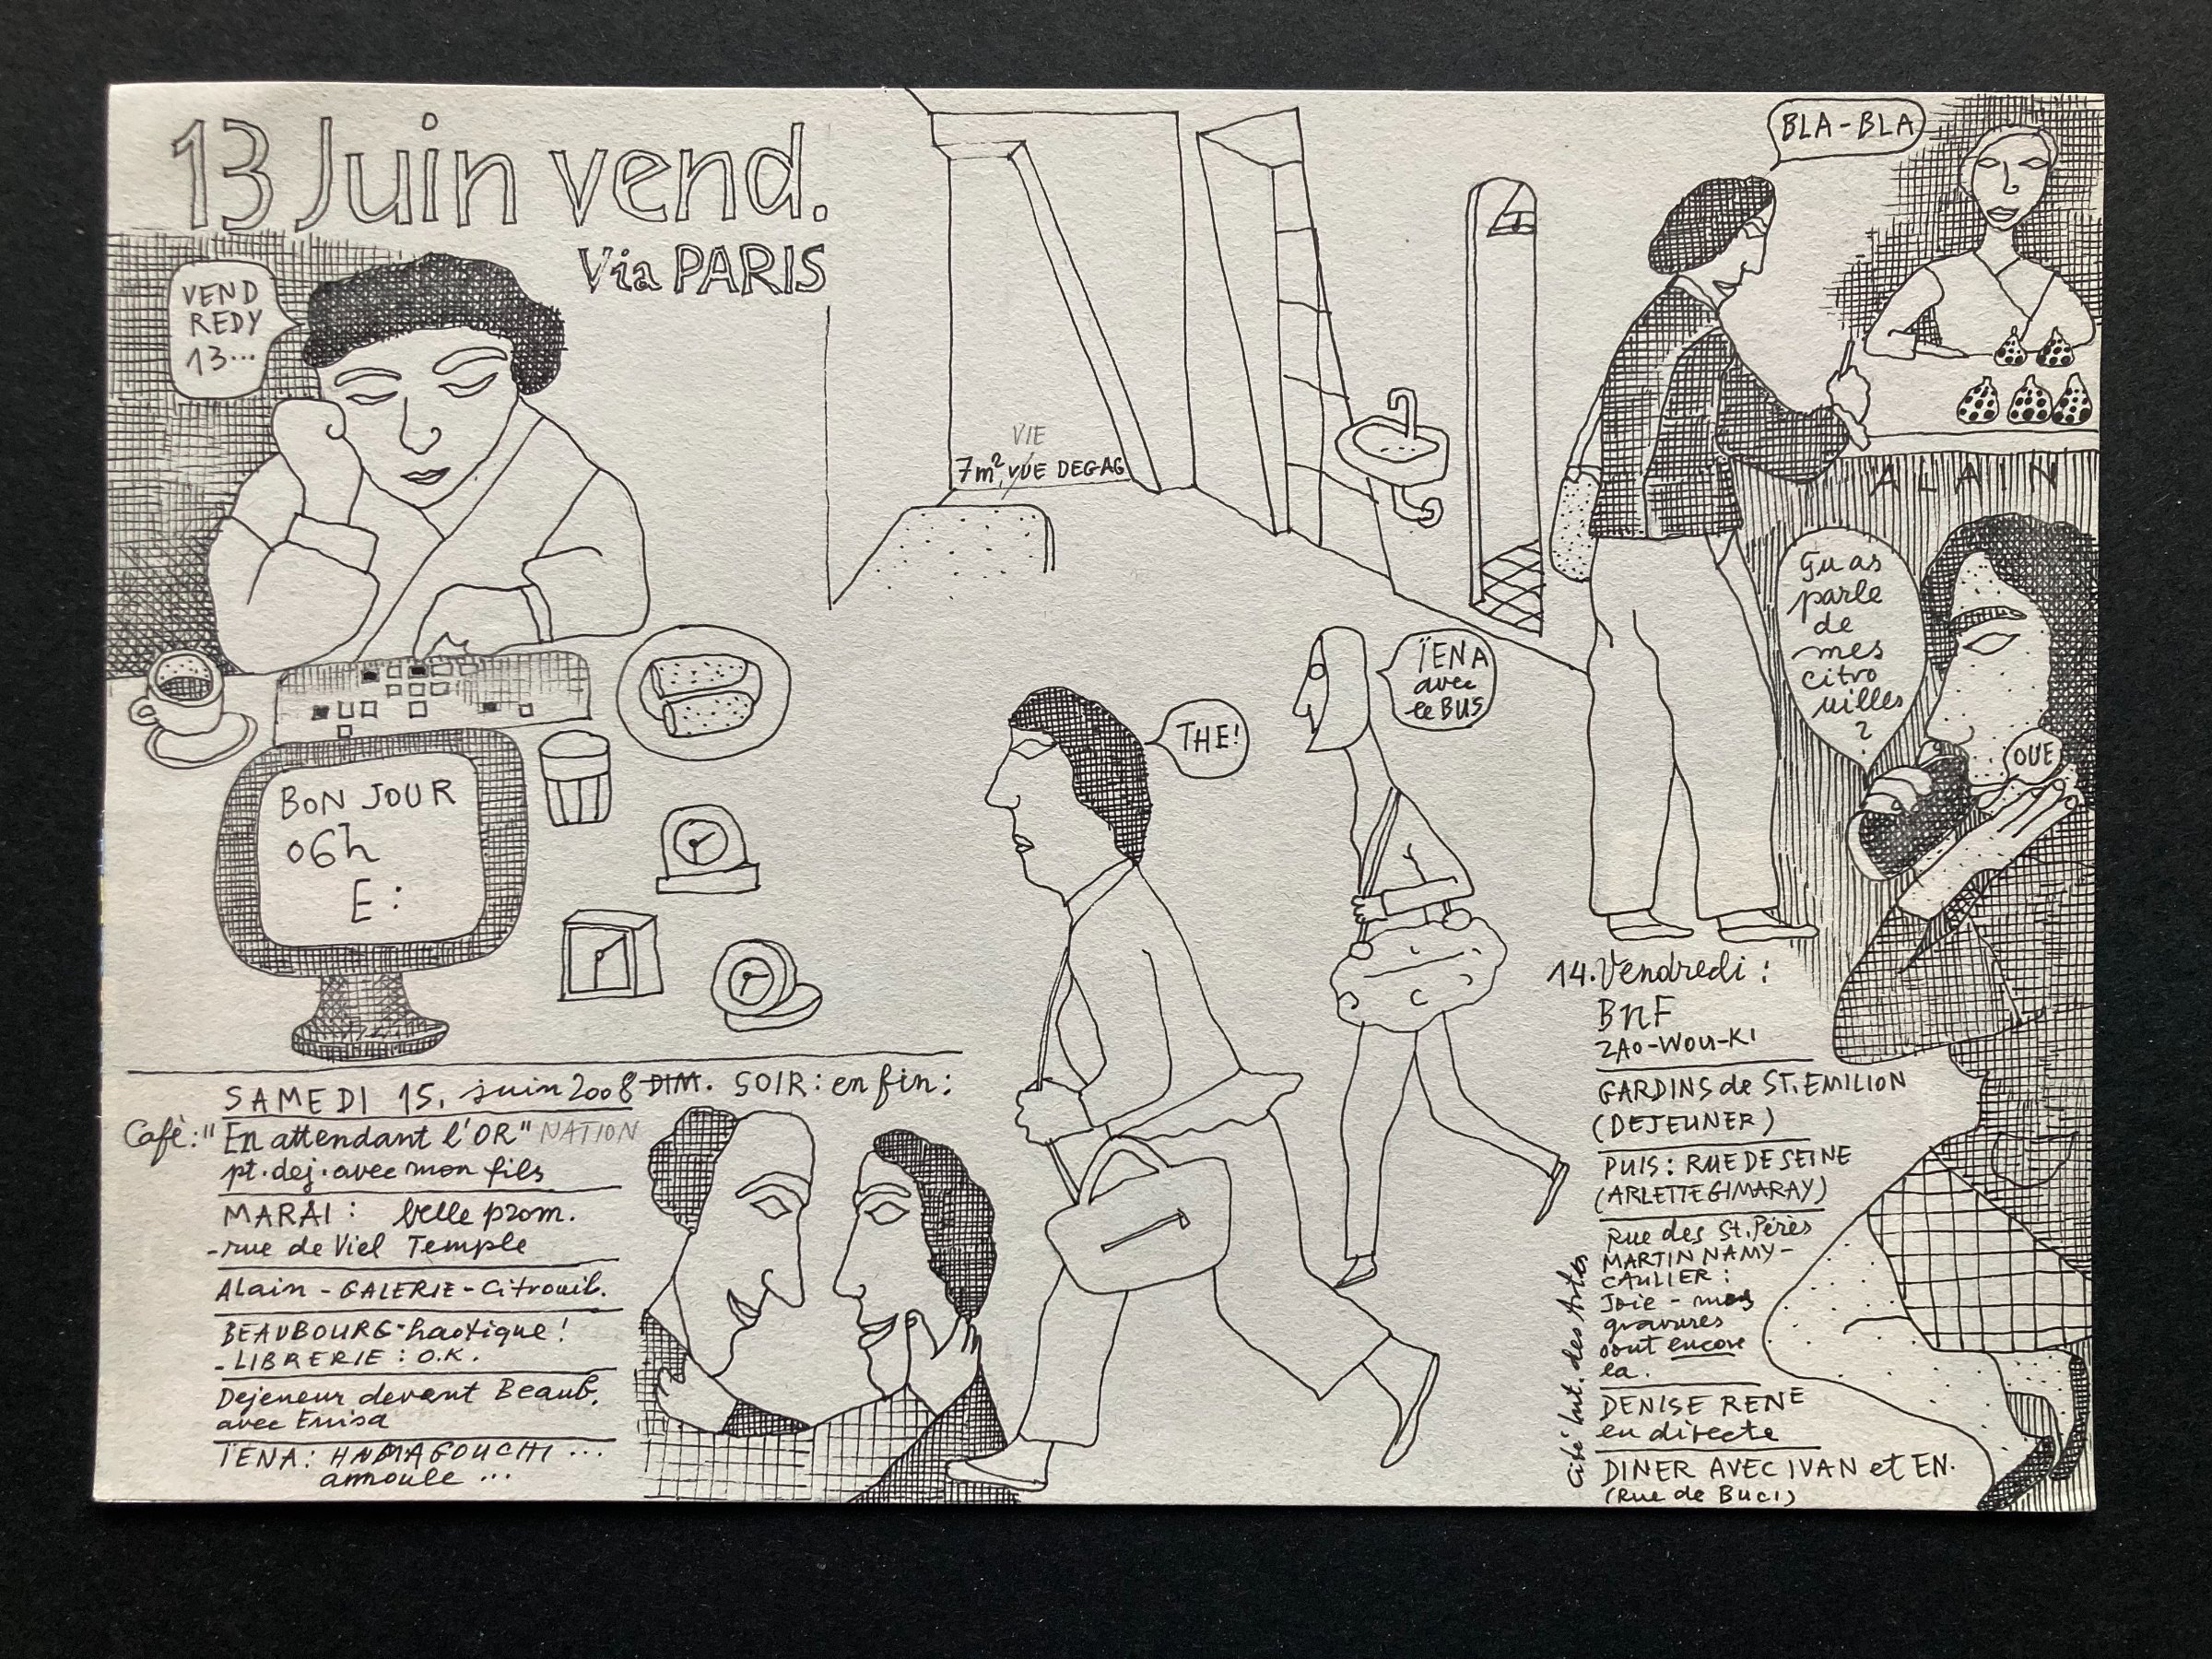 13 Juin vend.
Via PARIS
VEND
REDY
13...
BON JOUR
06h
E:
VIE
7m², VUE DEGAG
BLA-BLA
ALAIN
Tu as
parle
de
mes
citro
uilles
?
OUE
THE!
ÏENA
avec
le BUS
SAMEDI 15. juin 2008 DIM. SOIR: enfin:
Café: "En attendant l'OR" NATION
pt. dej. avec mon fils
MARAI: belle prom.
-rue de Viel Temple
Alain - GALERIE - Citrouil.
BEAUBOURG-haotique!
- LIBRERIE: O.K.
Dejeneur devant Beaub.
avec
ÏENA: HAMAGOUCHI...
annoule...
14. Vendredi:
BnF
ZAO-WOU-KI
GARDINS de ST. EMILION
(DEJEUNER)
PUIS: RUE DE SEINE
(ARLETTE GIMARAY)
Rue des St. Pérès
MARTIN NAMY-
CAULIER:
Joie - mes
gravures
sont encore
la.
DENISE RENE
en directe
DINER AVEC IVAN et EN.
(Rue de Buci)
Cité Int. des Artes